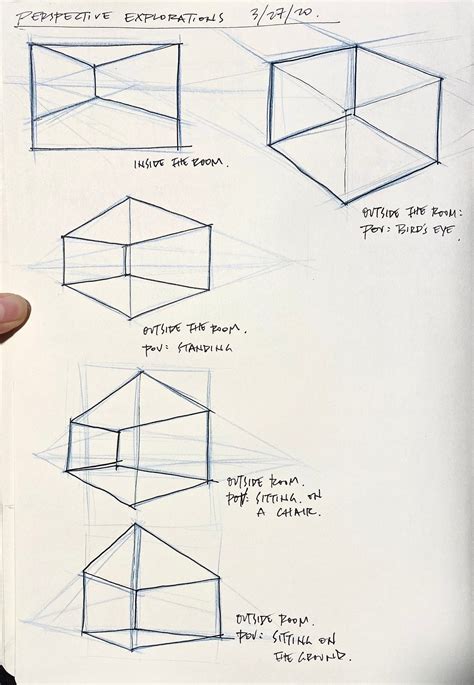 PERSPECTIVE EXPLORATIONS 3/27/20.
INSIDE THE ROOM.
OUTSIDE THE ROOM:
POV: BIRD'S EYE
OUTSIDE THE ROOM.
POV: STANDING
OUTSIDE ROOM.
POV: SITTING ON
A CHAIR.
OUTSIDE ROOM.
POV: SITTING ON
THE GROUND.